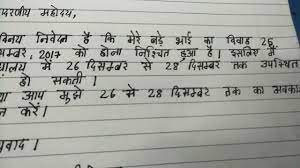 दरणीय महोदय,
विनय निवेदन है कि मेरे बड़े भाई का विवाह 26
म्बर, 2017 को होना निश्चित हुआ है। इसलिए मैं
द्यालय में 26 दिसम्बर से 28 दिसम्बर तक उपस्थित
हो सकती।
या आप मुझे 26 से 28 दिसम्बर तक का अवका
न करें।
यवाद।